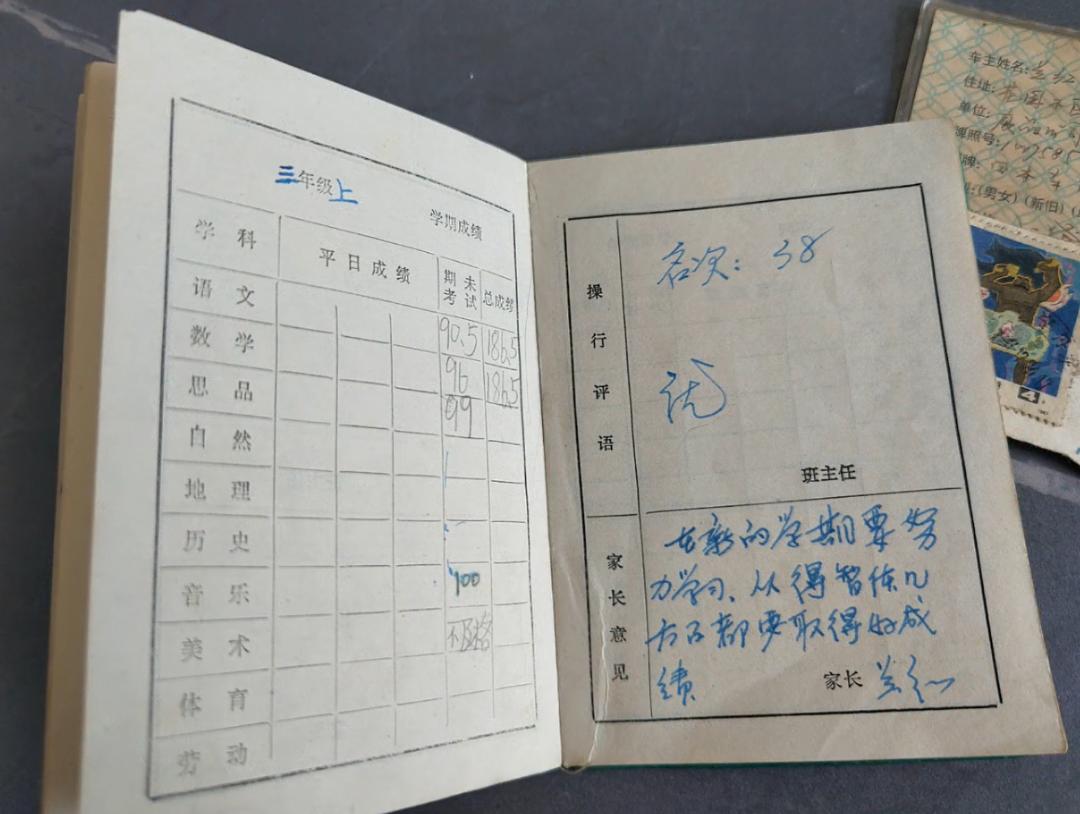 三年级上
学期成绩
学科 平日成绩 期末考试 总成绩
语文 90.5 186.5
数学 96 186.5
思品 99
自然
地理
历史
音乐 100
美术 不及格
体育
劳动
操行评语
名次：38
优
班主任
家长意见
在新的学期要努
力学习、从得智体几
方面都要取得好成
绩
家长 兰红
车主姓名:兰红
住址:
单位:
牌照号:
牌:
(男女)(新旧)
4